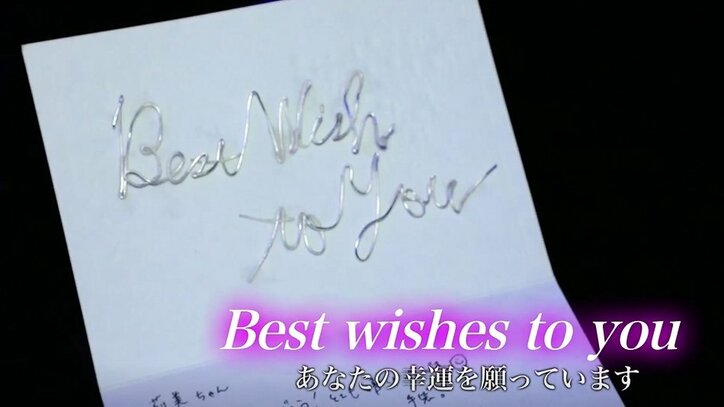 Best Wish
to You
Best wishes to you
あなたの幸運を願っています
美ちゃん